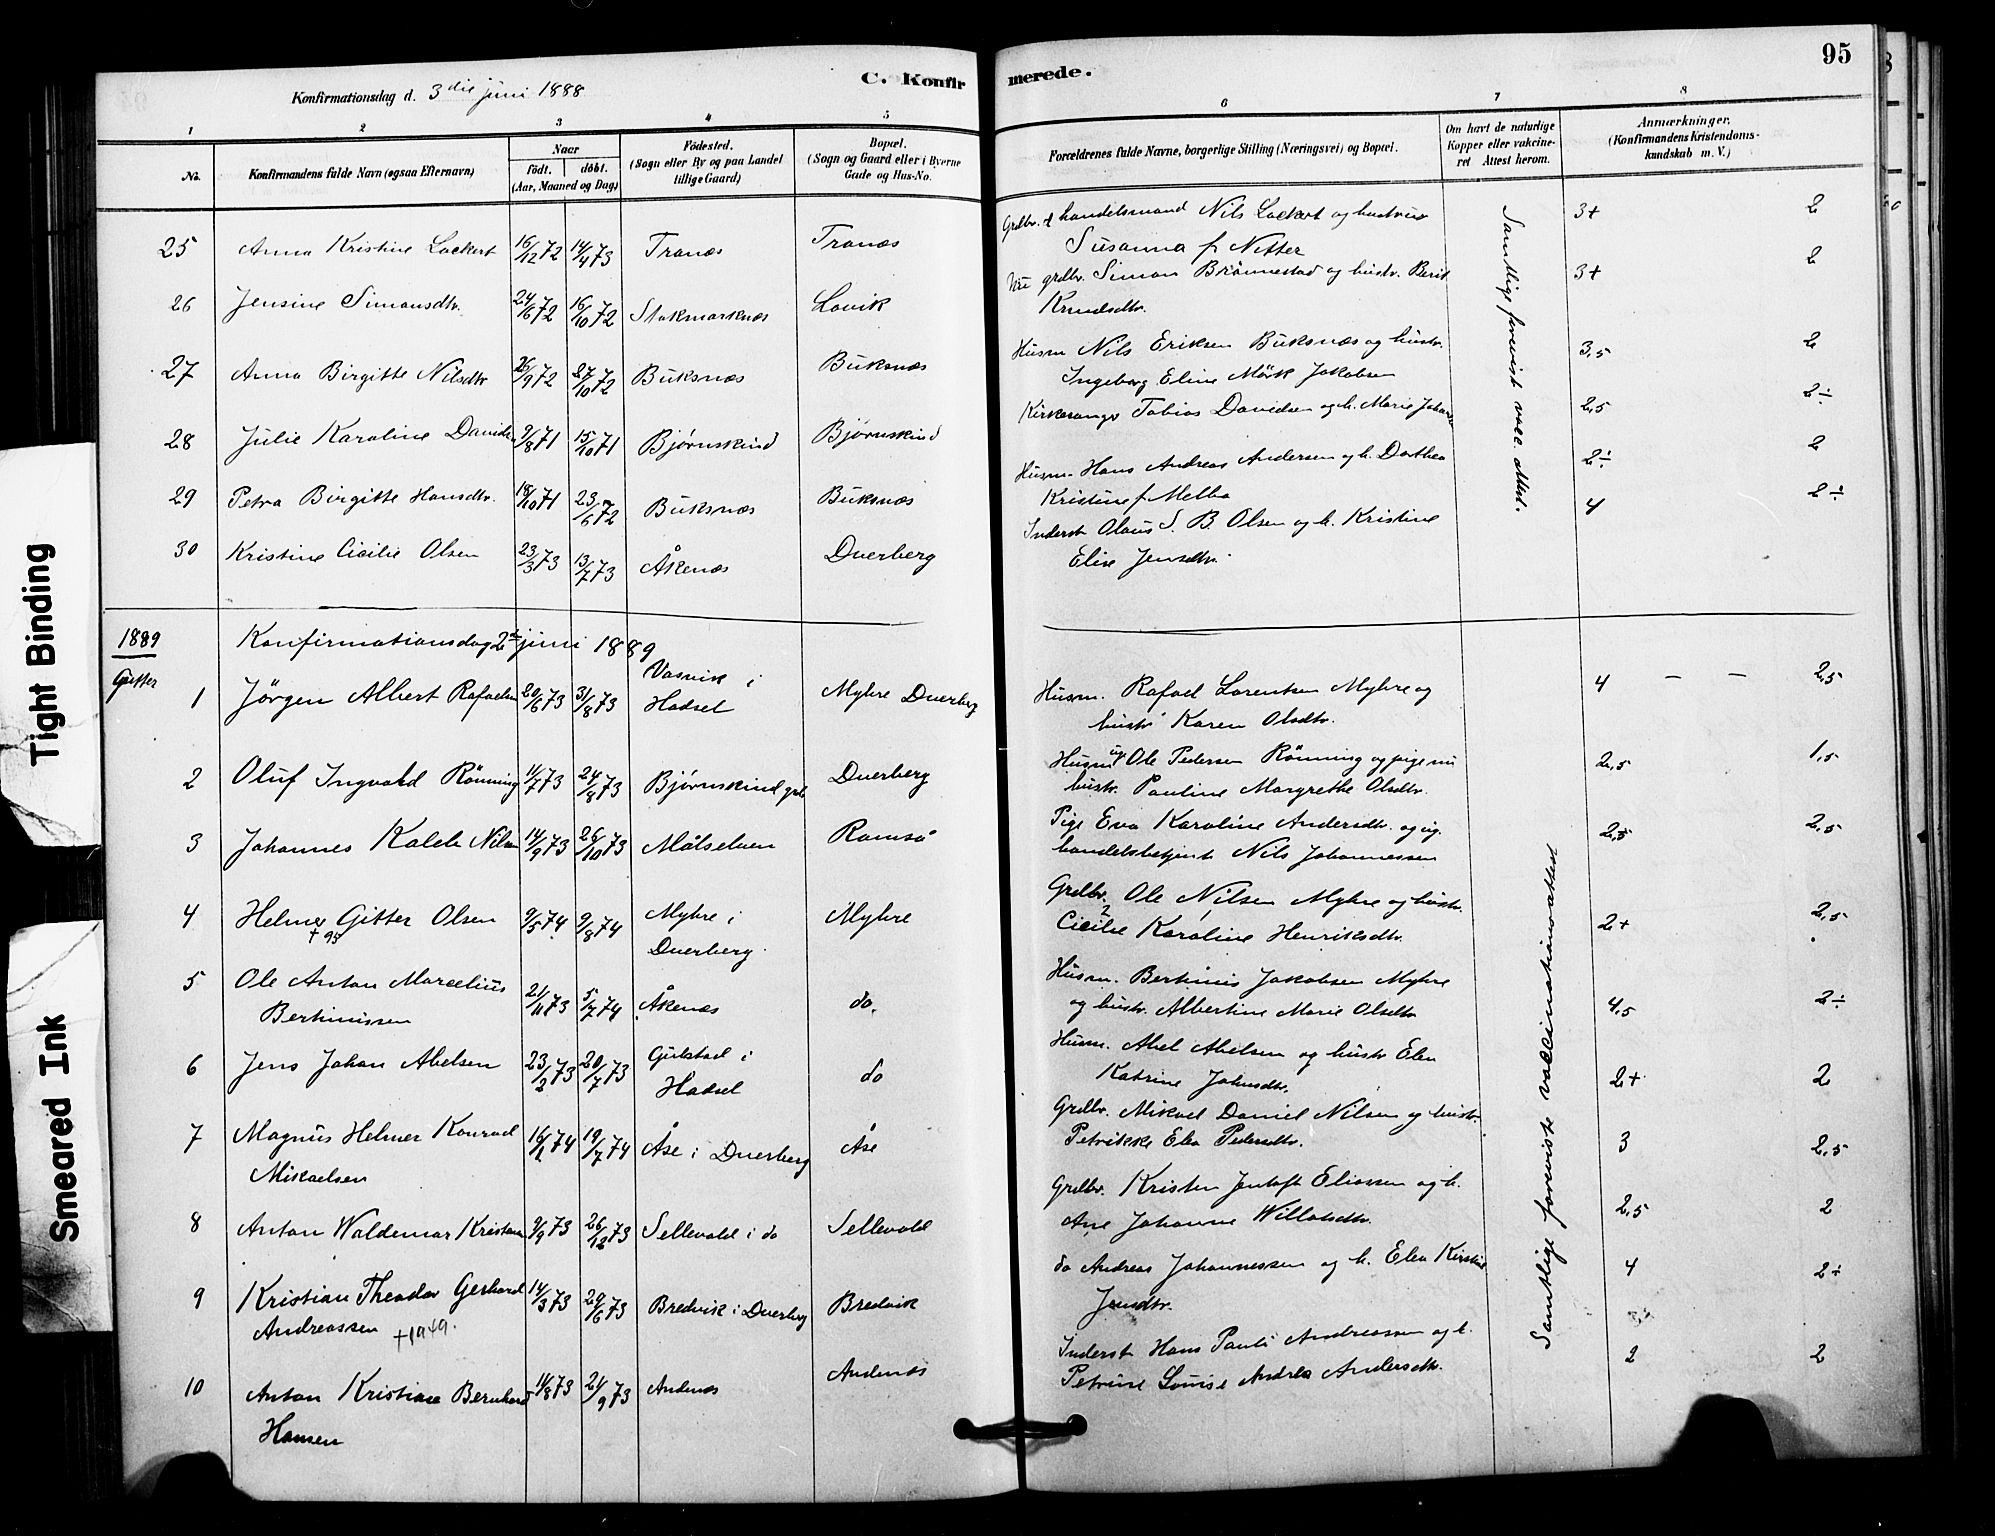 95
C. Konfirmerede.
Konfirmationsdag d. 3die juni 1888
1 2 3 4 5 6 7 8
No.
Konfirmandens fulde Navn (ogsaa Efternavn)
Naar
født. döbt.
(Aar, Maaned og Dag)
Födested.
(Sogn eller By og paa Landet
tillige Gaard)
Bopæl.
(Sogn og Gaard eller i Byerne
Gade og Hus-No.
Forældrenes fulde Navne, borgerlige Stilling (Næringsvei) og Bopæl.
Om havt de naturlige
Kopper eller vakcine-
ret Attest herom.
Anmærkninger.
(Konfirmandens Kristendoms-
kundskab m. V.)
25 Anna Kristine Lockert 16/12 72 14/4 73 Tranæs Tranæs
handelsmand Nils Lockert og hustru
Susanna f. Netter
3+ 2
26 Jensine Simonsdtr. 24/6 72 16/10 72 Stokmarknæs Lovik
grdbr. Simon Brönnestad og hustr. Berit
Knudsdtr.
3+ 2
27 Anna Birgitte Nilsdtr 26/9 72 27/10 72 Buksnæs Buksnæs
Husm Nils Eriksen Buksnæs og hustr.
Ingeborg Eline Mörk Jakobsen
3,5 2
28 Julie Karoline Davidsen 9/8 71 15/10 71 Bjørnskind Bjørnskind
Kirkesanger Tobias Davidsen og h. Marie Johans
2,5 2÷
29 Petra Birgitte Hansdtr. 18/10 71 23/6 72 Buksnæs Buksnæs
Husm. Hans Andreas Andersen og h. Dorthea
Kristine f. Melbo
2÷ 2
30 Kristine Cicilie Olsen 23/3 73 13/7 73 Åkenæs Dverberg
Inderst Olaus S. B. Olsen og h. Kristine
Elise Jensdtr.
4 2÷
Samtlige forevist vacc. attest.
1889 Konfirmationsdag 2den juni 1889
Gutter
1 Jörgen Albert Rafaelsen 20/6 73 31/8 73 Vasvik i
Hadsel
Myhre Dverberg
Husm. Rafael Lorentsen Myhre og
hustr Karen Olsdtr.
4 — — 2,5
2 Oluf Ingvald Rönning 11/7 73 24/8 73 Bjørnskind Dverberg
Husm ug Ole Pedersen Rönning og pige nu
hustr. Pauline Margrethe Olsdtr.
2,5 1,5
3 Johannes Kaleb Nilsen 14/9 73 26/10 73 Målselven Ramså
Pige Eva Karoline Andersdtr. og ug.
handelsbetjent Nils Johannessen
2,5 2,5
4 Helmer Gitter Olsen 9/5 74 9/8 74 Myhre i
Dverberg.
Myhre
† 95
Grdbr. Ole Nilsen Myhre og hustr.
Cicilie Karoline Henriksdtr.
2+ 2,5
5 Ole Anton Marcelius
Bertinussen
21/11 73 5/7 74 Åkenæs do.
Husm. Bertinus Jakobsen Myhre
og hustr. Albertine Marie Olsdtr
4,5 2÷
6 Jens Johan Abelsen 23/2 73 20/7 73 Gulstad i
Hadsel
do
Husm. Abel Abelsen og hustr Elen
Katrine Johnsdtr.
2+ 2
7 Magnus Helmer Konrad
Mikaelsen
16/2 74 19/7 74 Åse i Dverberg Åse
Grdbr. Mikael Daniel Nilsen og hustr.
Petrikke Elea Pedersdtr.
3 2,5
8 Anton Waldemar Kristensen 9/9 73 26/12 73 Sellevold i do Sellevold
Grdbr. Kristen Jentoft Eliassen og h.
Ane Johanne Willatsdtr.
2,5 2
9 Kristian Theodor Gerhard
Andreassen †1949.
14/3 73 29/6 73 Bredvik i Dverberg Bredvik
do Andreas Johannessen og h. Elea Kirstine
Jensdtr.
4 2÷
10 Anton Kristian Bernhard
Hansen
11/8 73 21/9 73 Andenæs Andenæs
Inderst Hans Pauli Andreassen og h.
Petrine Louise Andrea Andersdtr.
2 2
Samtlige foreviste vaccinationsattest
Tight Binding
Smeared Ink